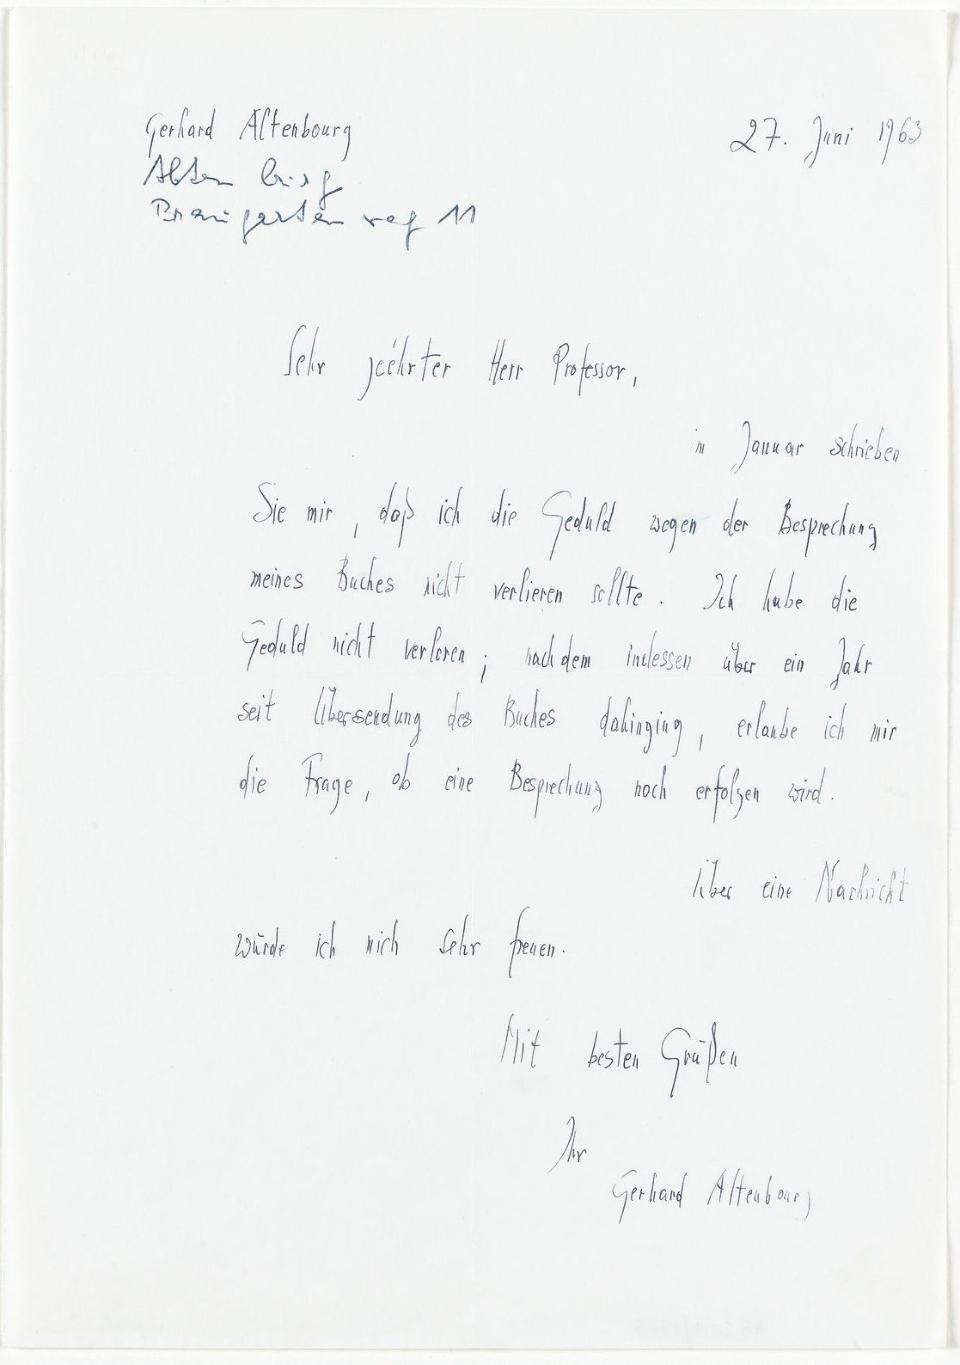 Gerhard Altenbourg
27. Juni 1963
Altenburg
Braugartenweg 11
Sehr geehrter Herr Professor,
im Januar schrieben
Sie mir, daß ich die Geduld wegen der Besprechung
meines Buches nicht verlieren sollte. Ich habe die
Geduld nicht verloren; nachdem indessen über ein Jahr
seit Übersendung des Buches dahinging, erlaube ich mir
die Frage, ob eine Besprechung noch erfolgen wird.
Über eine Nachricht
würde ich mich sehr freuen.
Mit besten Grüßen
Ihr
Gerhard Altenbourg